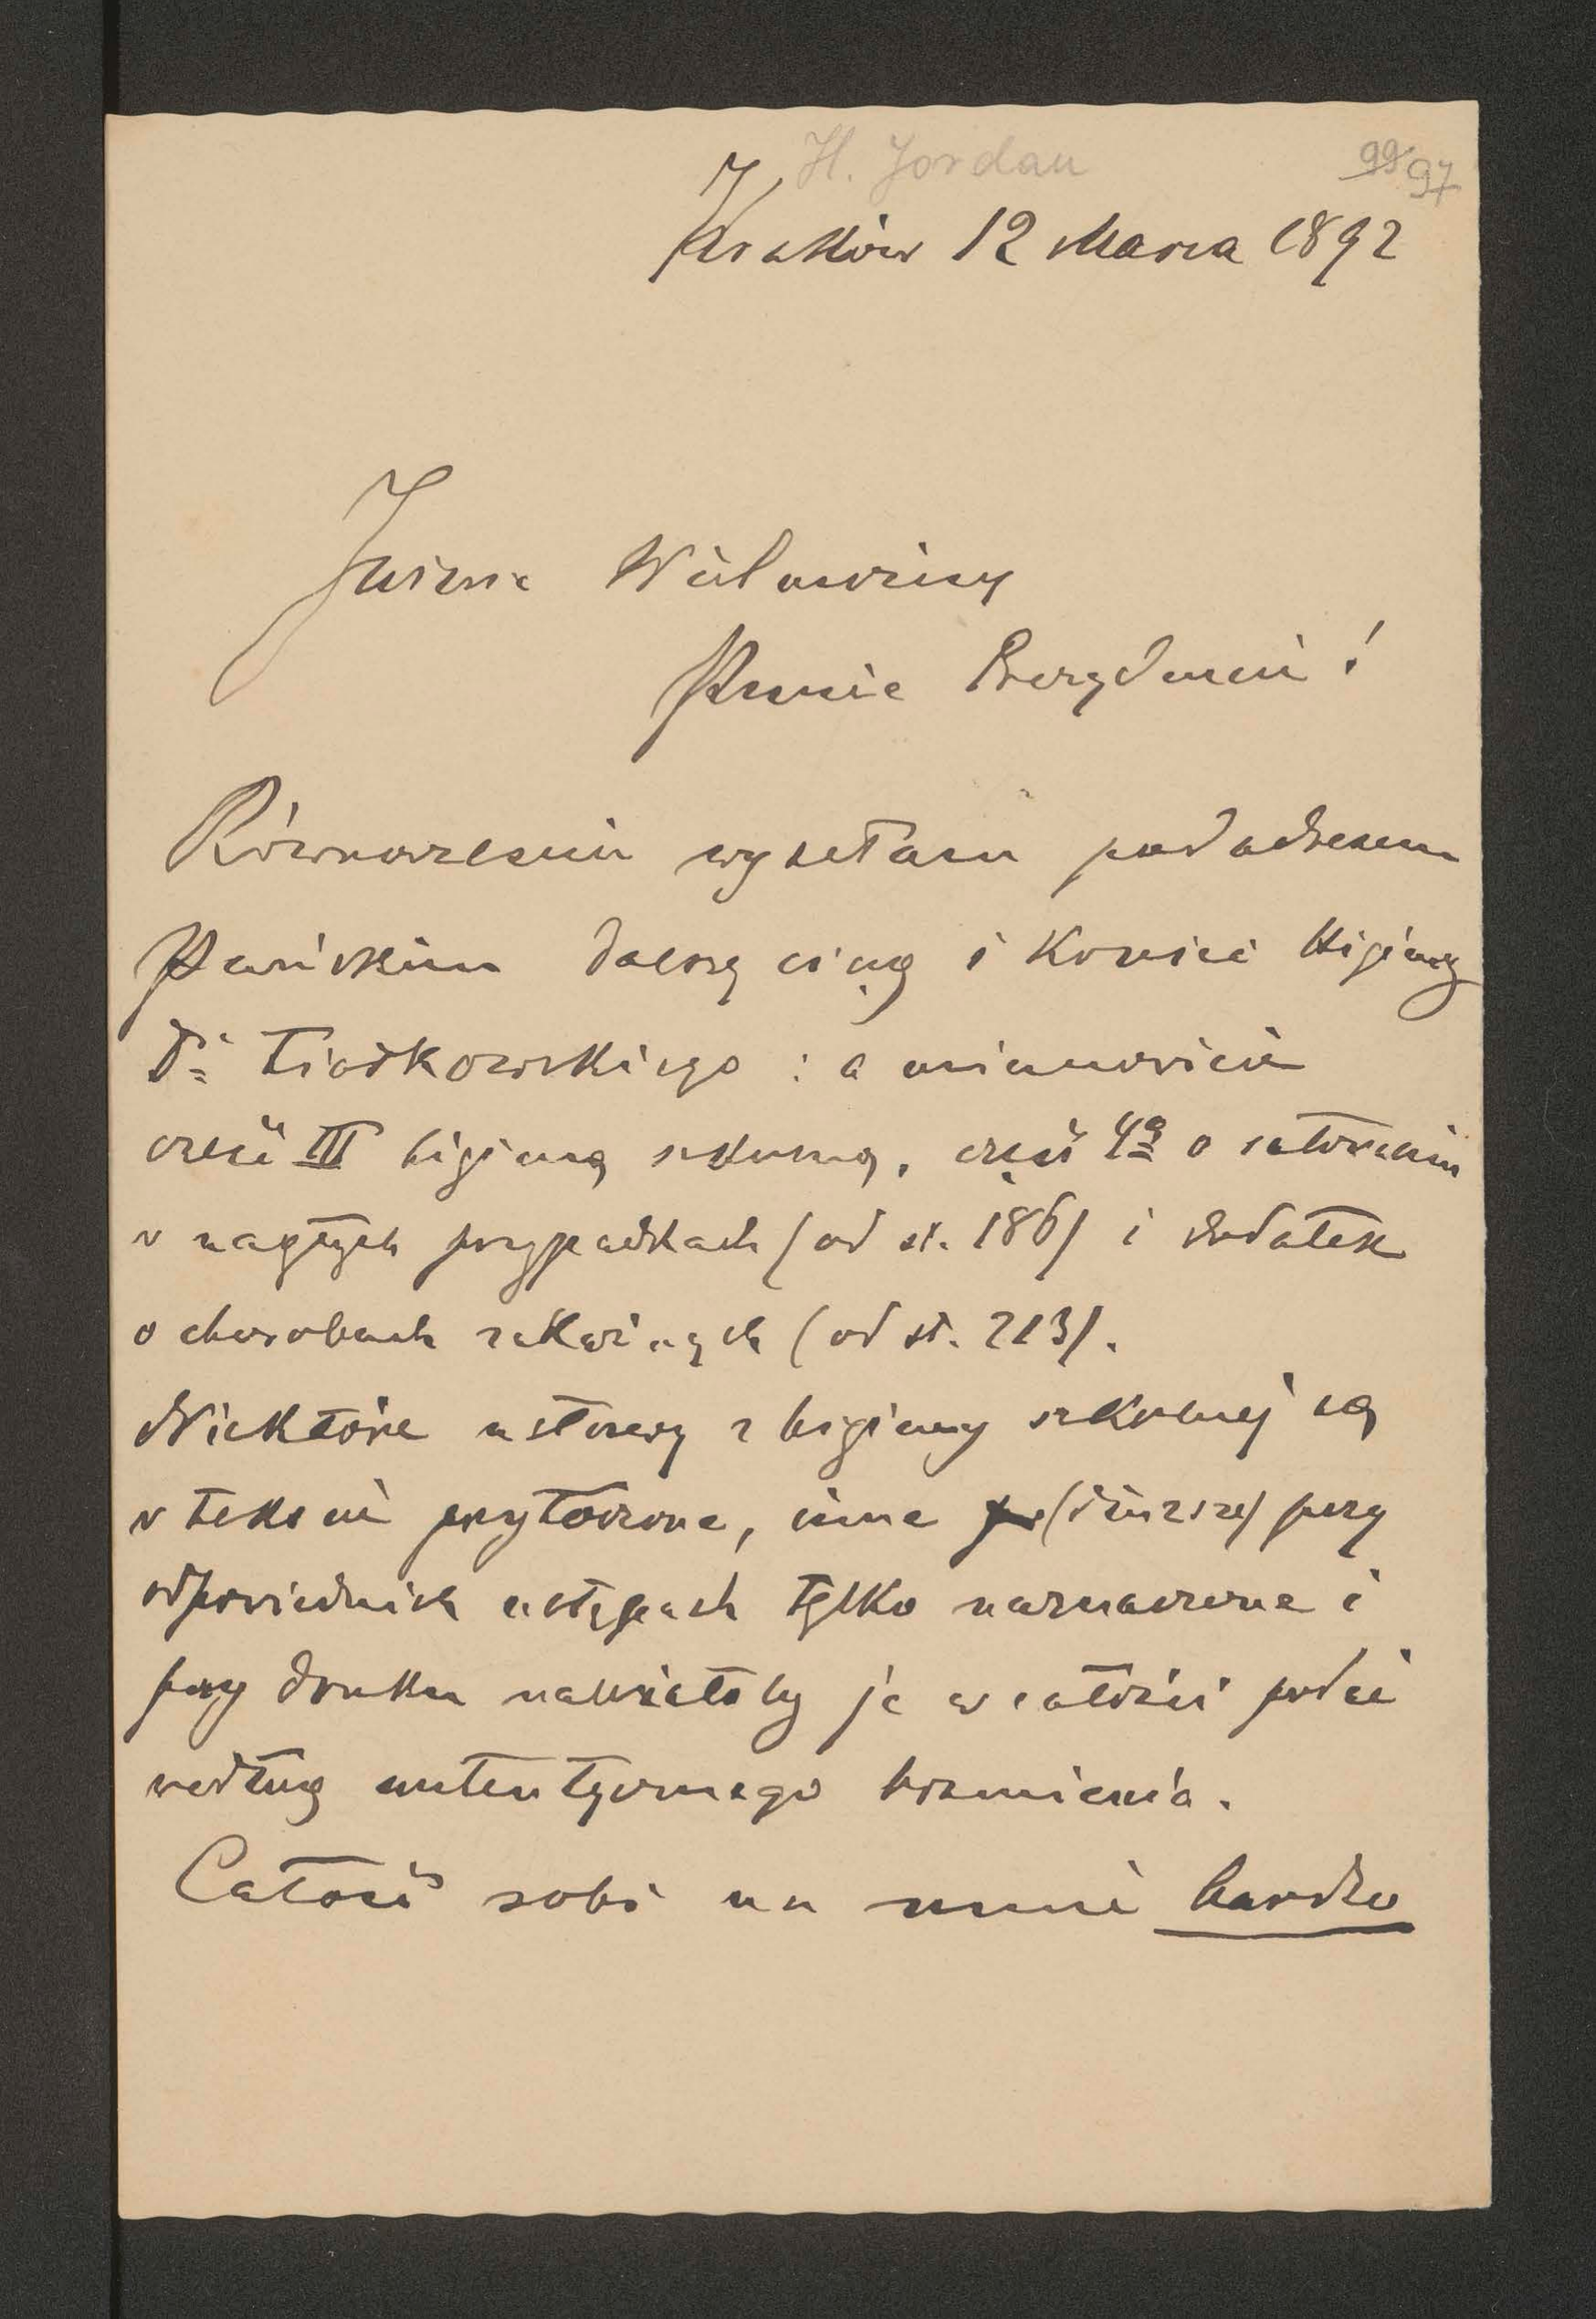 H. Jordan
99 97
Kraków 12 Marca 1892
Jaśnie Wielmożny
Panie Prezydencie!
Równocześnie wysełam pod adresem
Pańskim dalszy ciąg i koniec Higieny
Dra : a mianowicie
część III higienę szkolną, część 4a o ratowaniu
w nagłych przypadkach (od st. 186) i dodatek
o chorobach zakaźnych (od st. 213).
Niektóre ustawy z higieny szkolnej są
w tekscie przytoczone, inne (dłuższe) przy
odpowiednich ustępach tylko naznaczone i
przy druku należałoby je w całości podać
według autentycznego brzmienia.
Całość robi na mnie bardzo